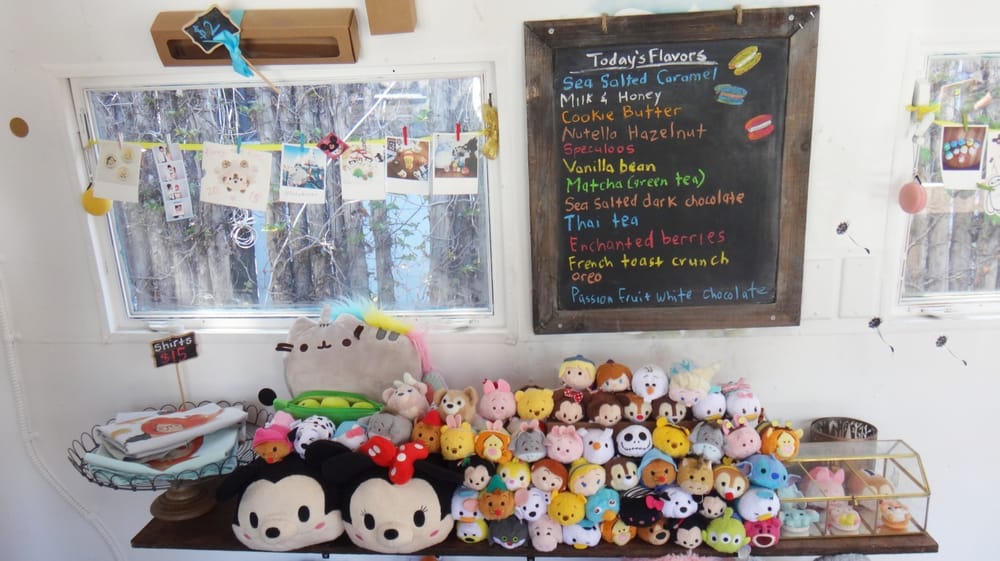 Today's Flavors
Sea Salted Caramel
Milk & Honey
Cookie Butter
Nutella Hazelnut
Speculoos
Vanilla bean
Matcha (green tea)
Sea Salted dark chocolate
Thai tea
Enchanted berries
French toast crunch
oreo
Passion Fruit white chocolate
Shirts
$15